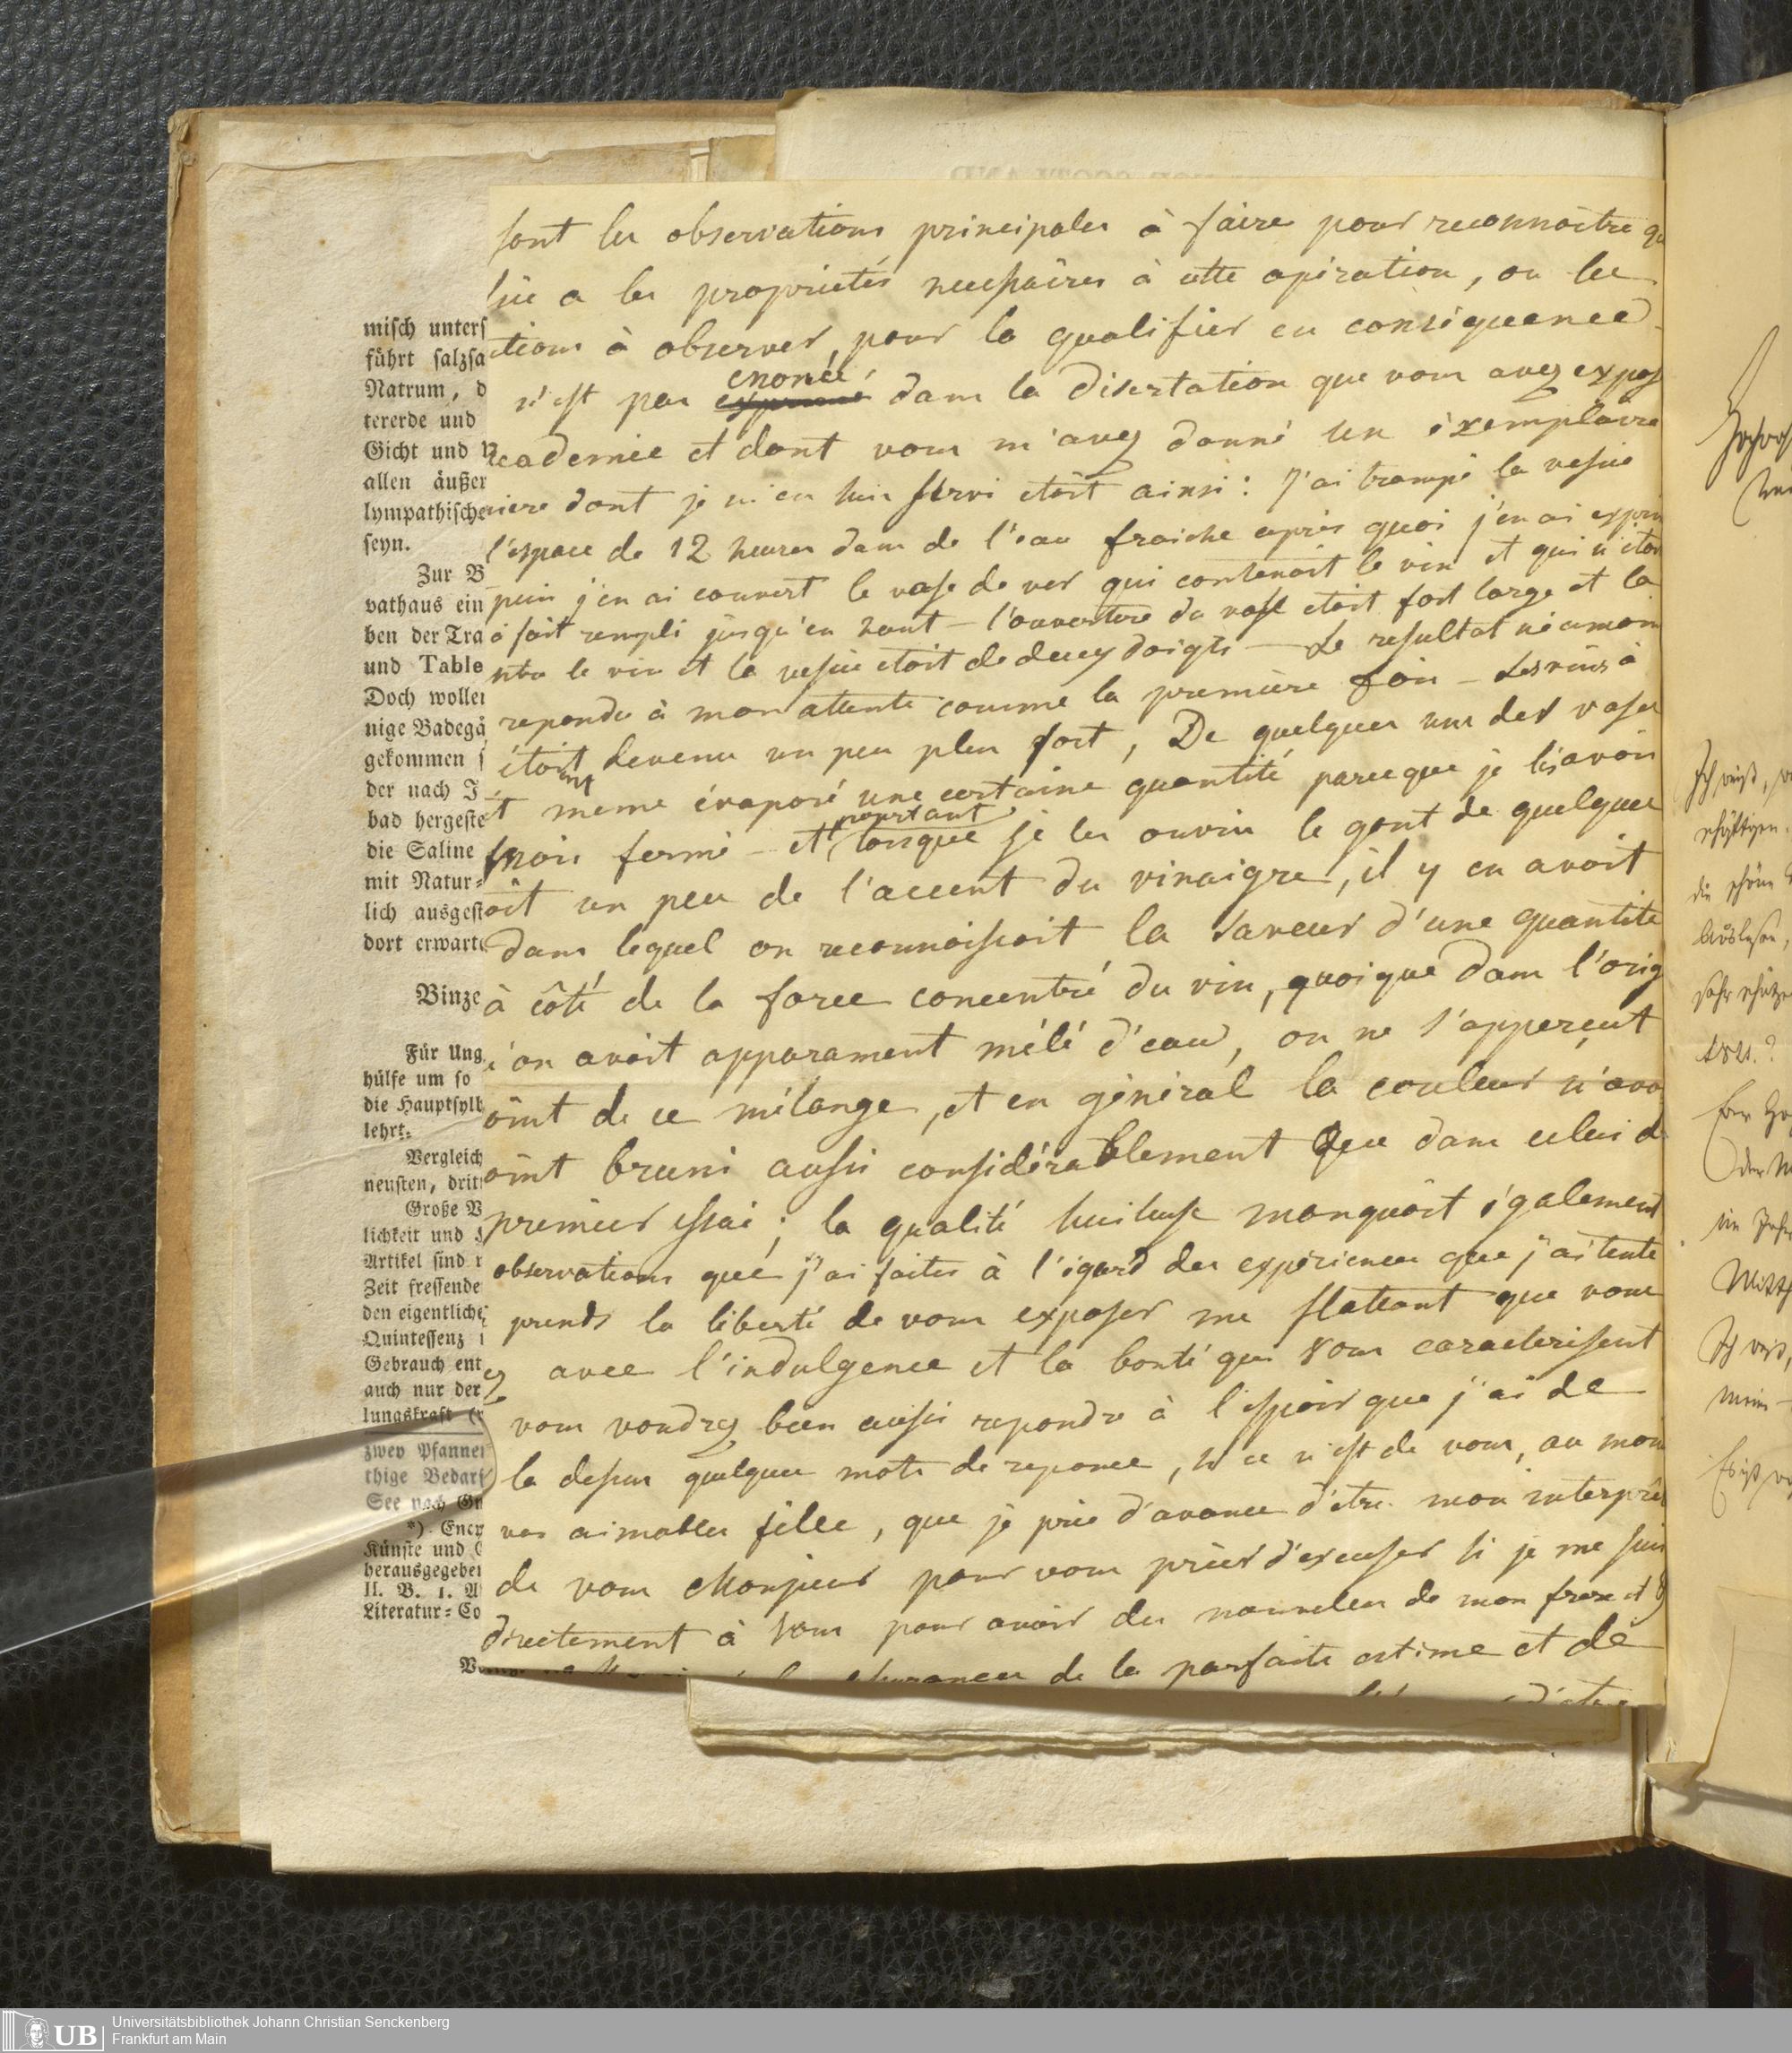 misch unters
führt salzsa
Natrum, d
tererde und
Gicht und
allen äußer
lympathische
seyn.
Zur B
vathaus ein
ben der Tra
und Table
Doch woller
nige Badegä
gekommen
der nach I
bad hergeste
die Saline
mit Natur-
lich ausgest
dort erwarte
Binze
Für Ung
hülfe um so
die Hauptsylb
lehrt.
Vergleich
neusten, drit
Große V
lichkeit und
Artikel sind
Zeit fressende
den eigentliche
Quintessenz
Gebrauch ent
auch nur der
lungskraft
zwey Pfannen
thige Bedarf
See nach Gr
*) Ency
Künste und
herausgegeben
II. B. 1. A
Literatur-Co
sont les observations principales à faire pour reconnoitre qu
sie a les proprietés necessaires à cette opération, ou les
ctions à observer, pour la qualifier en conséquence
n'est pas enoncé dans la disertation que vous avez expos
academie et dont vous m'avez donné un éxemplaire
niere dont je m'en suis servi etoit ainsi: J'ai trempé la vessie
l'espace de 12 heures dans de l'eau fraiche après quoi j'en ai exprim
puis j'en ai couvert le vase de ver qui contenoit le vin et qui n'etoi
à fait rempli jusqu'en haut – l'ouverture du vase etoit fort large et la
ntre le vin et la vessie etoit de deux doigts – Le resultat néamoin
repondu à mon attente comme la première fois – Les vins à
étoit devenu un peu plus fort, De quelques uns des vases
t meme évaporé une certaine quantité parceque je les avois
mois fermé – et lorsque pourtant je les ouvris le gout de quelques
oit un peu de l'accent du vinaigre, il y en avoit
dans lequel on reconnoissoit la saveur d'une quantité
à côté de la force concentré du vin, quoique dans l'orig
l'on avoit apparament mélé d'eau, on ne s'apperçut
oint de ce mélange, et en général la couleur n'avo
oint bruni aussi considérablement que dans celui d
premier essai; la qualité huileuse manquoit également
observations que j'ai faites à l'égard des expériences que j'ai tenté
prends la liberté de vous exposer me flatant que vous
z avec l'indulgence et la bonté qui vous caracterisent
vous voudrez bien aussi repondre à l'espoir que j'ai de
la dessus quelques mots de reponce, si ce n'est de vous, au moin
vos aimables filles, que je prie d'avance d'etre mon interprêt
de vous Monsieur pour vous prier d'excuser si je me suis
directement à vous pour avoir des nouvelles de mon frere et
de la parfaite estime et de
Ich weiß,
die schöne
1821.?
im Jahr